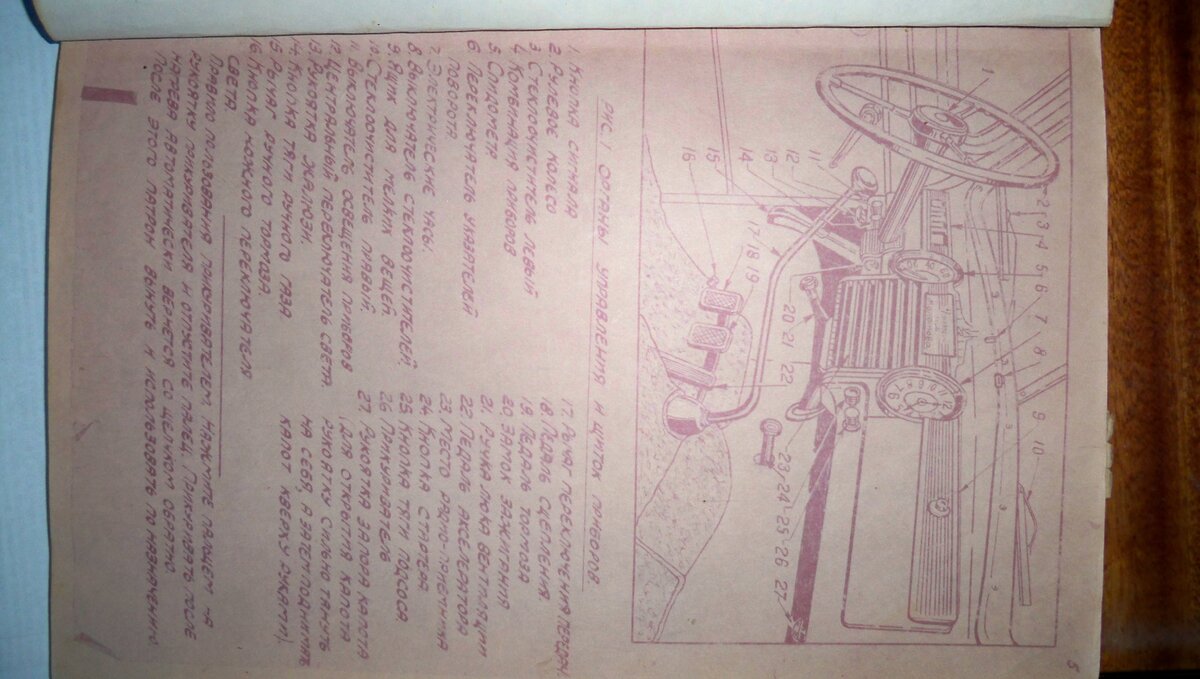 5
1
2
3
4
5
6
7
8
9
10
11
12
13
14
15
16
17 18 19
20 21
22
23 24 25 26 27
РИС. 1 ОРГАНЫ УПРАВЛЕНИЯ И ЩИТОК ПРИБОРОВ.
1. КНОПКА СИГНАЛА
2 РУЛЕВОЕ КОЛЬСО
3. СТЕКЛООЧИСТИТЕЛЬ ЛЕВЫЙ
4 КОМБИНАЦИЯ ПРИБОРОВ
5 СПИДОМЕТР
6 ПЕРЕКЛЮЧАТЕЛЬ УКАЗАТЕЛЕЙ
ПОВОРОТА
7. ЭЛЕКТРИЧЕСКИЕ ЧАСЫ.
8. ВЫКЛЮЧАТЕЛЬ СТЕКЛООЧИСТИТЕЛЕЙ.
9. ЯЩИК ДЛЯ МЕЛКИХ ВЕЩЕЙ
10. СТЕКЛООЧИСТИТЕЛЬ ПРАВЫЙ.
11. ВЫКЛЮЧАТЕЛЬ ОСВЕЩЕНИЯ ПРИБОРОВ
12. ЦЕНТРАЛЬНЫЙ ПЕРЕКЛЮЧАТЕЛЬ СВЕТА.
13. РУКОЯТКА ЖАЛЮЗИ.
14. КНОПКА ТЯГИ РУЧНОГО ГАЗА
15 РЫЧАГ РУЧНОГО ТОРМОЗА.
16. КНОПКА НОЖНОГО ПЕРЕКЛЮЧАТЕЛЯ
СВЕТА
17. РЫЧАГ ПЕРЕКЛЮЧЕНИЯ ПЕРЕДАЧ.
18. ПЕДАЛЬ СЦЕПЛЕНИЯ.
19. ПЕДАЛЬ ТОРМОЗА
20. ЗАМОК ЗАЖИГАНИЯ
21. РУЧКА ЛЮКА ВЕНТИЛЯЦИИ
22. ПЕДАЛЬ АКСЕЛЕРАТОРА
23. МЕСТО РАДИО-ПРИЕМНИКА
24 КНОПКА СТАРТЕРА.
25 КНОПКА ТЯГИ ПОДСОСА
26 ПРИКУРИВАТЕЛЬ
27. РУКОЯТКА ЗАПОРА КАПОТА
(ДЛЯ ОТКРЫТИЯ КАПОТА
РУКОЯТКУ СИЛЬНО ТЯНУТЬ
НА СЕБЯ, А ЗАТЕМ ПОДНИМАТЬ
КАПОТ КВЕРХУ РУКАМИ)
ПРАВИЛО ПОЛЬЗОВАНИЯ ПРИКУРИВАТЕЛЕМ: НАЖМИТЕ ПАЛЬЦЕМ НА
РУКОЯТКУ ПРИКУРИВАТЕЛЯ И ОТПУСТИТЕ ПАЛЕЦ. ПРИКУРИВАТЕЛЬ ПОСЛЕ
НАГРЕВА АВТОМАТИЧЕСКИ ВЕРНЕТСЯ СО ЩЕЛЧКОМ ОБРАТНО.
ПОСЛЕ ЭТОГО ПАТРОН ВЫНУТЬ И ИСПОЛЬЗОВАТЬ ПО НАЗНАЧЕНИЮ